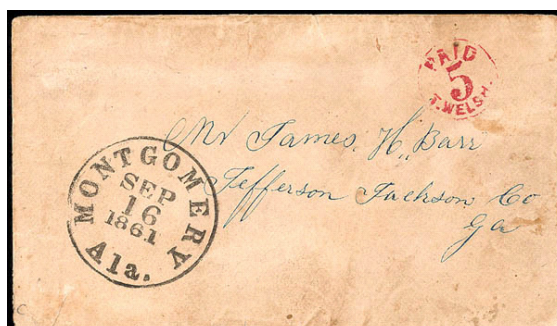 PAID
5
T. WELSH
Mr James, H,, Barr
Jefferson Jackson Co
Ga
MONTGOMERY
SEP
16
1861
Ala.